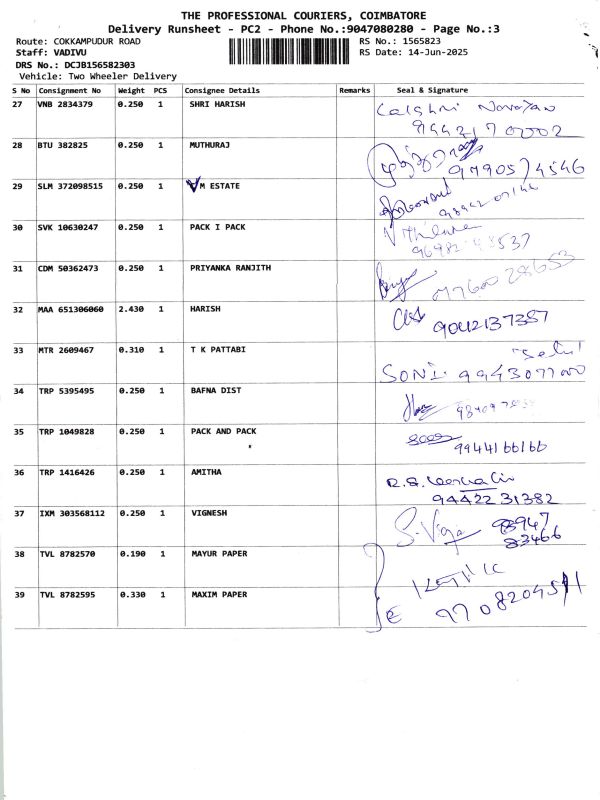 THE PROFESSIONAL COURIERS, COIMBATORE
Delivery Runsheet - PC2 - Phone No.:9047080280 - Page No.:3
Route: COKKAMPUDUR ROAD RS No.: 1565823
Staff: VADIVU RS Date: 14-Jun-2025
DRS No.: DCJB156582303
Vehicle: Two Wheeler Delivery
S No Consignment No Weight PCS Consignee Details Remarks Seal & Signature
27 VNB 2834379 0.250 1 SHRI HARISH
28 BTU 382825 0.250 1 MUTHURAJ
9790574546
29 SLM 372098515 0.250 1 M ESTATE
30 SVK 10630247 0.250 1 PACK I PACK
31 CDM 50362473 0.250 1 PRIYANKA RANJITH
32 MAA 651306060 2.430 1 HARISH
9042137387
33 MTR 2609467 0.310 1 T K PATTABI
SONI
34 TRP 5395495 0.250 1 BAFNA DIST
35 TRP 1049828 0.250 1 PACK AND PACK
9944166166
36 TRP 1416426 0.250 1 AMITHA
94422 31382
37 IXM 303568112 0.250 1 VIGNESH
98947
83466
38 TVL 8782570 0.190 1 MAYUR PAPER
39 TVL 8782595 0.330 1 MAXIM PAPER